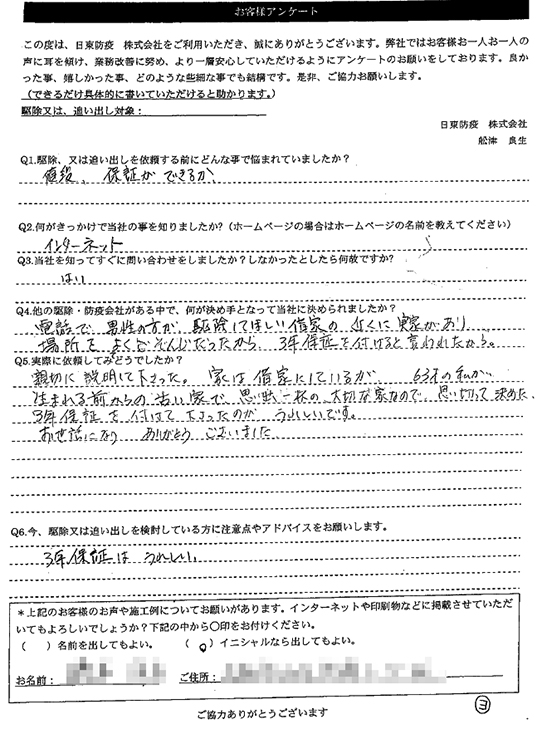 お客様アンケート
この度は、日東防疫 株式会社をご利用いただき、誠にありがとうございます。弊社ではお客様お一人お一人の
声に耳を傾け、業務改善に努め、より一層安心していただけるようにアンケートのお願いをしております。良か
った事、嬉しかった事、どのような些細な事でも結構です。是非、ご協力お願いします。
（できるだけ具体的に書いていただけると助かります。）
駆除又は、追い出し対象：
日東防疫 株式会社
舩津 良生
Q1.駆除、又は追い出しを依頼する前にどんな事で悩まれていましたか？
値段、保証ができるか、
Q2.何がきっかけで当社の事を知りましたか？（ホームページの場合はホームページの名前を教えてください）
インターネット
Q3.当社を知ってすぐに問い合わせをしましたか？しなかったとしたら何故ですか？
はい
Q4.他の駆除・防疫会社がある中で、何が決め手となって当社に決められましたか？
電話で、男性の方が、駆除してほしい借家の近くに実家があり
場所をよくごぞんじだったから、3年保証を付けると言われたから。
Q5.実際に依頼してみてどうでしたか？
親切に説明して下さった。家は借家にしているが、63才の私が、
生まれる前からの古い家で、思い出一杯の大切な家なので、思い切って決めた、
3年保証を付けて下さったのが、うれしいです。
お世話になり ありがとうございました
Q6.今、駆除又は追い出しを検討している方に注意点やアドバイスをお願いします。
3年保証はうれしい、
＊上記のお客様のお声や施工例についてお願いがあります。インターネットや印刷物などに掲載させていただ
いてもよろしいでしょうか？下記の中から〇印をお付けください。
（ ）名前を出してもよい。 （〇）イニシャルなら出してもよい。
お名前： ご住所：
③
ご協力ありがとうございます